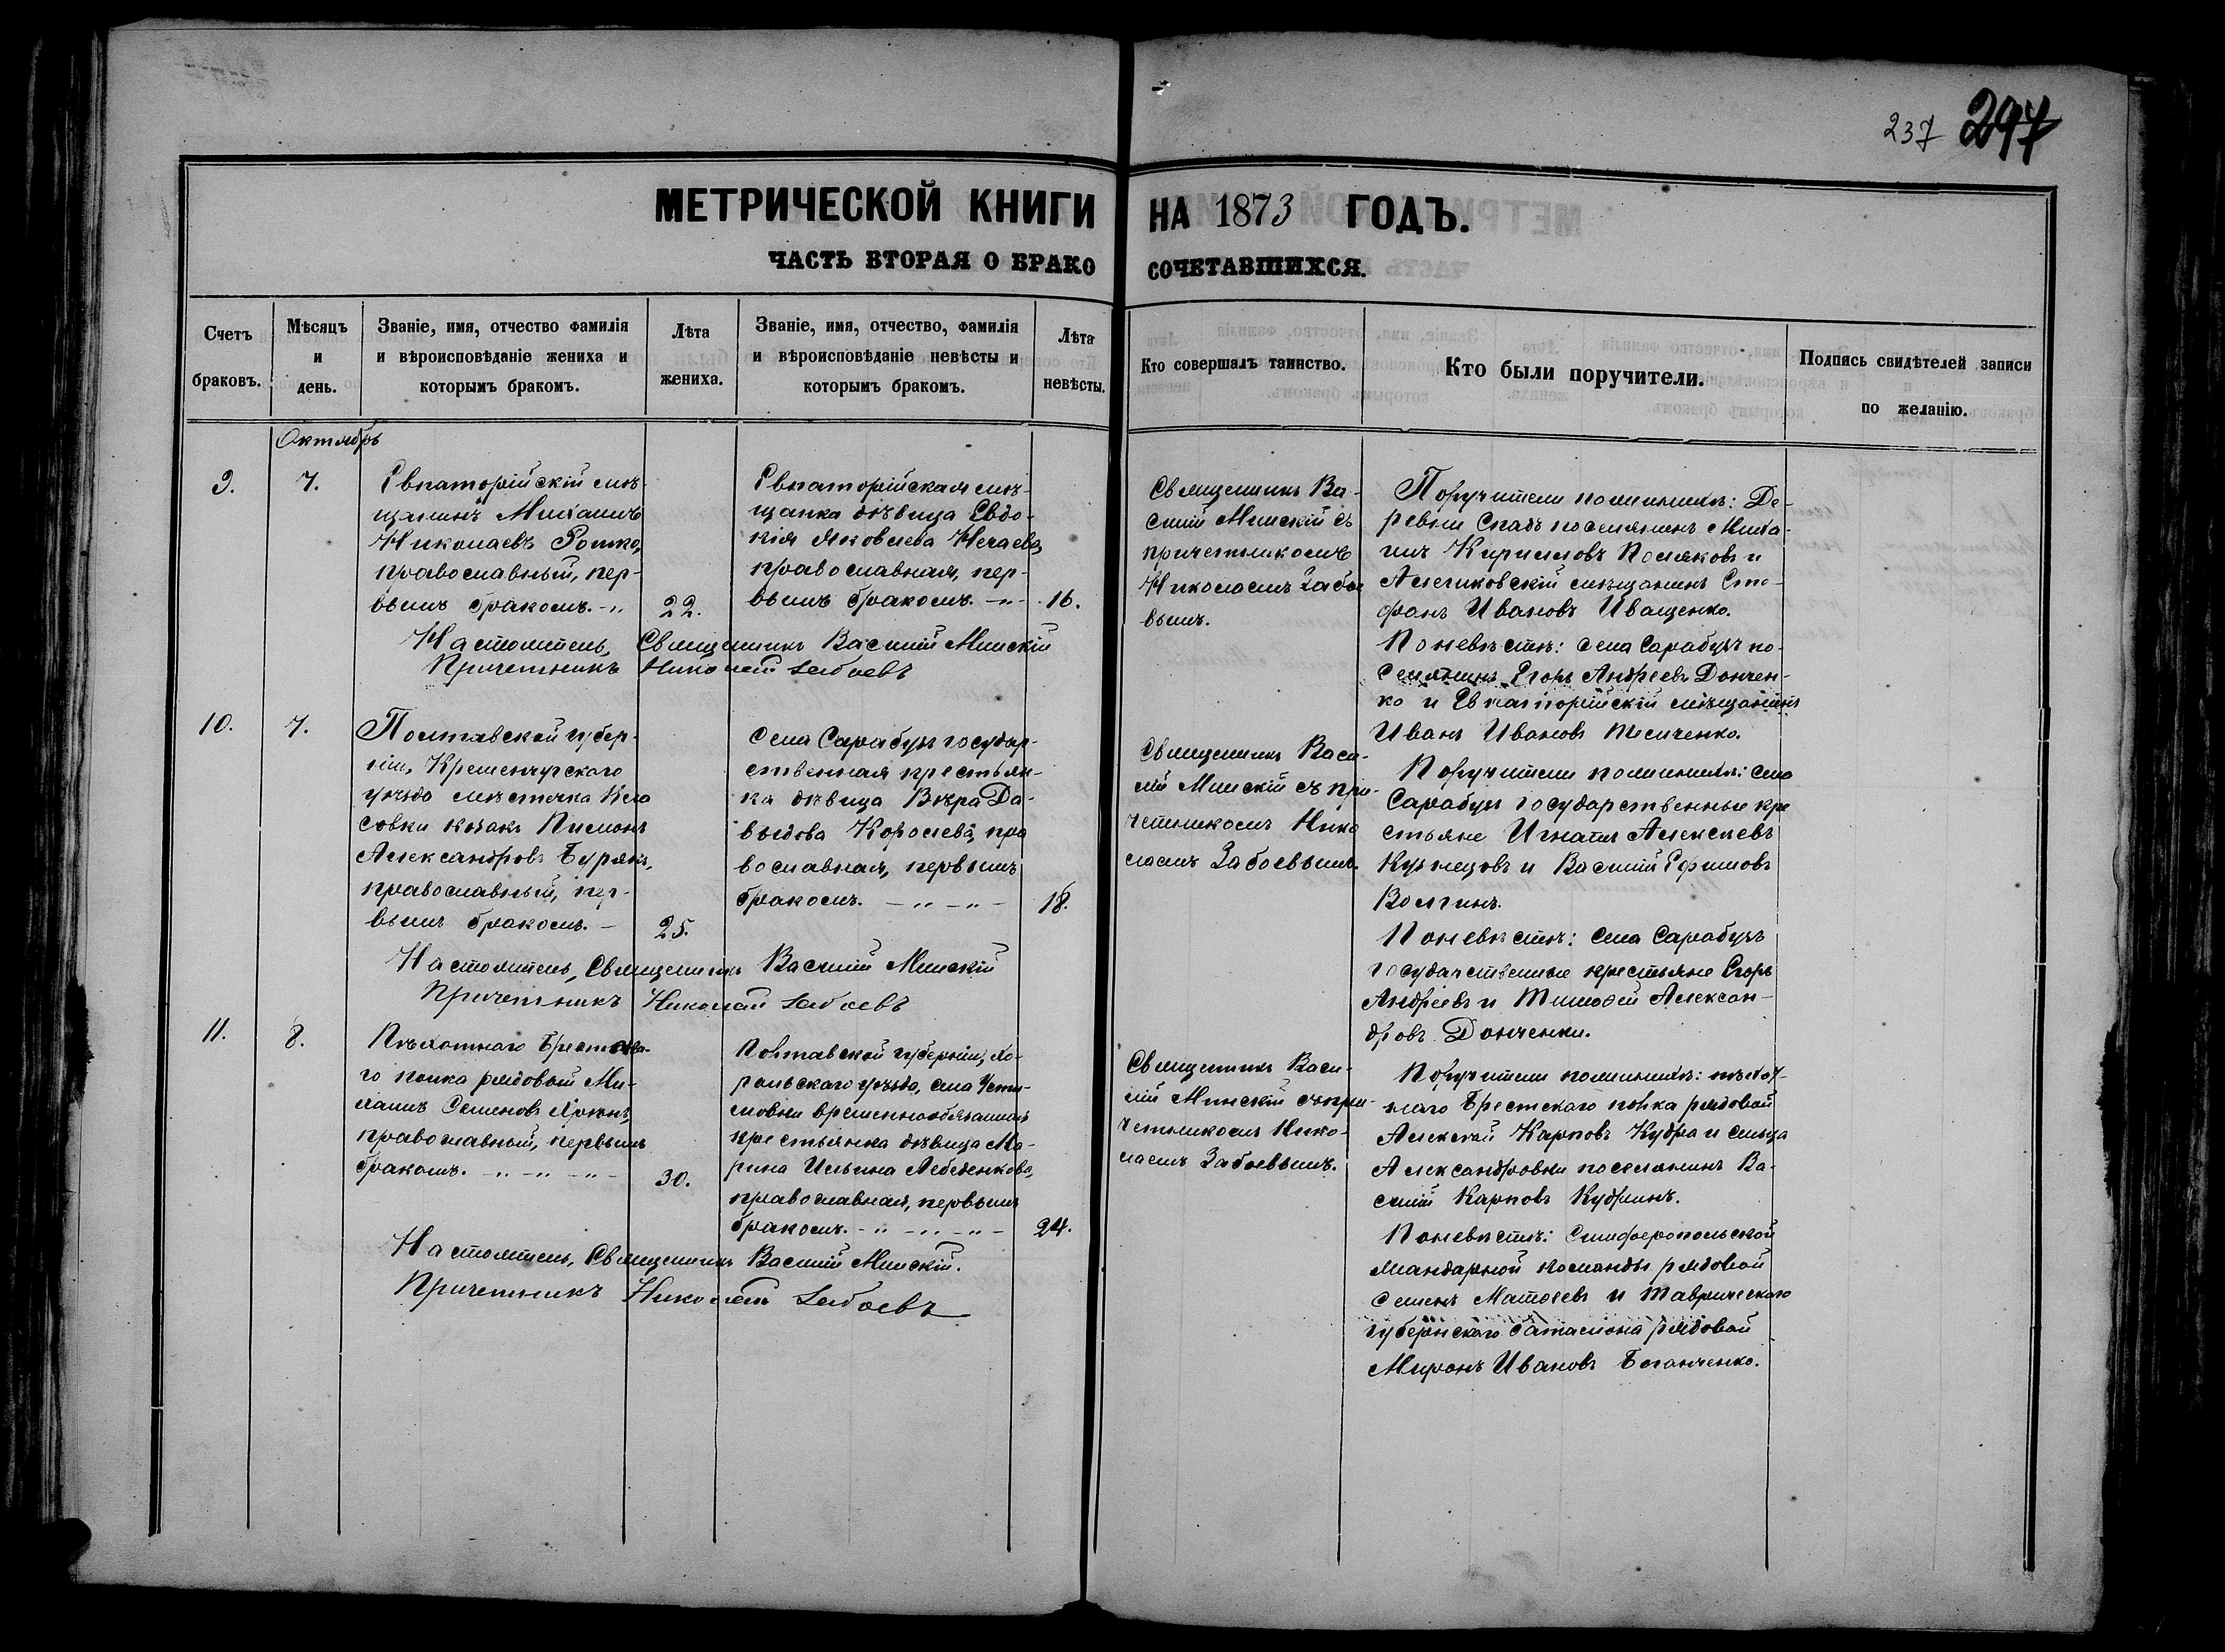 237 297
МЕТРИЧЕСКОЙ КНИГИ НА 1873 ГОДЪ.
ЧАСТЬ ВТОРАЯ О БРАКОСОЧЕТАВШИХСЯ.
Счетъ браковъ.
Мѣсяцъ и день.
Званіе, имя, отчество фамилія и вѣроисповѣданіе жениха и которымъ бракомъ.
Лѣта жениха.
Званіе, имя, отчество, фамилія и вѣроисповѣданіе невѣсты и которымъ бракомъ.
Лѣта невѣсты.
Кто совершалъ таинство.
Кто были поручители.
Подпись свидѣтелей записи по желанію.
Октябрь
9.
7.
Евпаторійскій мѣ-
щанинъ Михаилъ
Николаевъ
православный, пер-
вымъ бракомъ.
22.
Евпаторійская мѣ-
щанка дѣвица Евдо-
кія Яковлева Нечаева,
православная, пер-
вымъ бракомъ.
16.
Священникъ Ва-
силій Минскій съ
причетникомъ
Николаемъ Забое
вымъ.
Поручители по женихѣ: Де-
ревни Спатъ поселянинъ Миха-
илъ Кирилловъ Поляковъ и
Алешковскій мѣщанинъ Сте-
фанъ Ивановъ Иващенко.
По невѣстѣ: села Сарабузъ по-
селянинъ Егоръ Андреевъ Дончен-
ко и Евпаторійскій мѣщанинъ
Иванъ Ивановъ Тесиченко.
Настоятель, Священникъ Василій Минскій
Причетникъ Николай Забоевъ
10.
7.
Полтавской губер-
ніи, Кременчугскаго
уѣзда мѣстечка Кела
совки козакъ Пименъ
Александровъ Бурякъ,
православный, пер-
вымъ бракомъ.
25.
Села Сарабузъ государ-
ственная крестьян-
ка дѣвица Вѣра Да-
выдова Королева, пра
вославная, первымъ
бракомъ.
18.
Священникъ Васи-
лій Минскій съ при-
четникомъ Нико
лаемъ Забоевымъ.
Поручители по женихѣ: села
Сарабузъ государственные кре
стьяне Игнатій Алексѣевъ
Кузнецовъ и Василій Ефимовъ
Волгинъ.
По невѣстѣ: Села Сарабузъ
государственные крестьяне Егоръ
Андреевъ и Тимофей Алексан-
дровъ Донченки.
Настоятель, Священникъ Василій Минскій
Причетникъ Николай Забоевъ
11.
8.
Пѣхотнаго Брестска-
го полка рядовой Ми-
хаилъ Семеновъ
православный, первымъ
бракомъ.
30.
Полтавской губерніи, Хо-
рольскаго уѣзда, села Усти-
мовки временнообязанная
крестьянка дѣвица Ма-
рина Ильина Лебеденкова,
православная, первымъ
бракомъ.
24.
Священникъ Васи-
лій Минскій съ при-
четникомъ Нико-
лаемъ Забоевымъ.
Поручители по женихѣ: пѣхот-
наго Брестскаго полка рядовой
Алексѣй Карповъ Кудра и сельца
Александровки поселянинъ Ва-
силій Карповъ Кудринъ.
По невѣстѣ: Симферопольской
жандармской команды рядовой
Семенъ Матвеевъ и Таврическаго
губернскаго баталіона рядовой
Миронъ Ивановъ Боганченко.
Настоятель, Священникъ Василій Минскій.
Причетникъ Николай Забоевъ